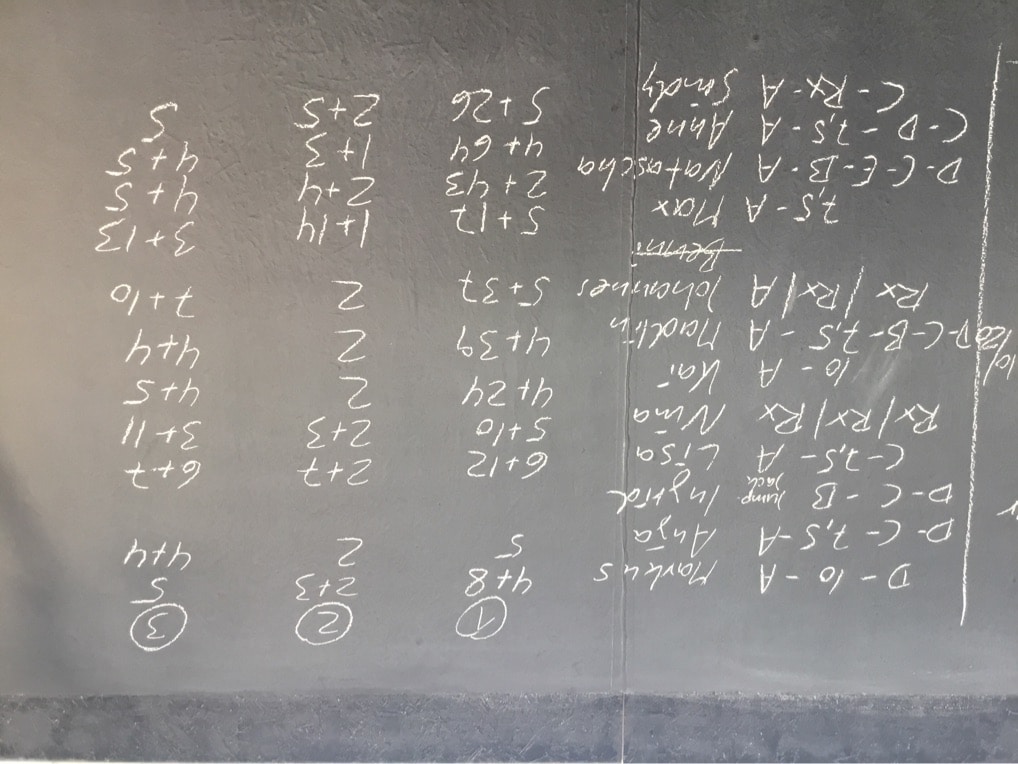 ① ② ③
D - 10 - A Markus 4+8 2+3 5
D - C - 7,5 - A Anja 5 2 4+4
D - C - B Jump Jack Ingrid
C - 7,5 - A Lisa 6+12 2+7 6+7
Rx / Rx / Rx Nina 5+10 2+3 3+11
10 - A Kai 4+24 2 4+5
D - C - B - 7,5 - A Madlin 4+39 2 4+4
Rx / Rx / A Johannes 5+37 2 7+10
Benni
7,5 - A Max 5+12 1+14 3+13
D - C - E - B - A Natascha 2+43 2+4 4+5
C - D - 7,5 - A Anne 4+64 1+3 4+5
C - Rx - A Sindy 5+26 2+5 5